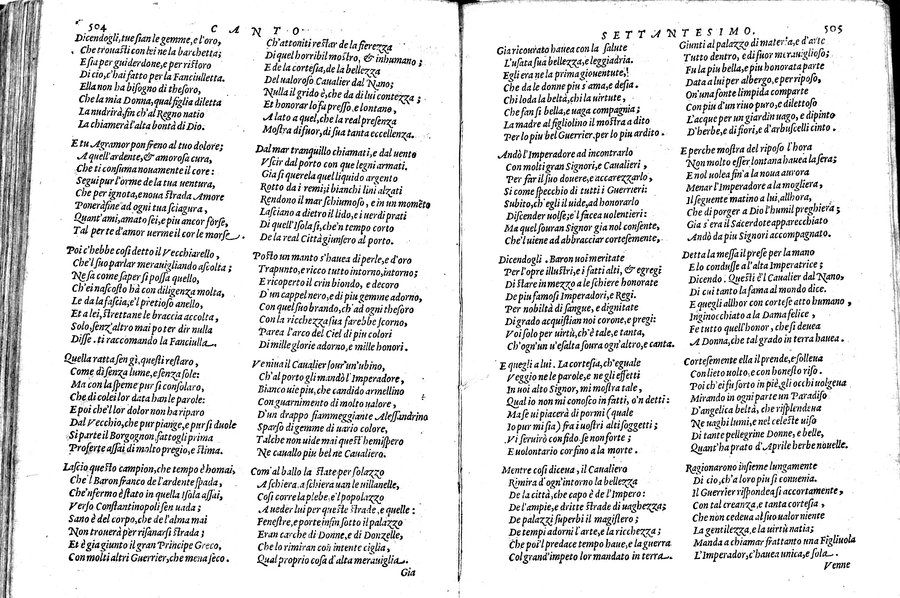 504 CANTO
Dicendogli, tue sian le gemme, e l'oro,
Che trouasti con lei ne la barchetta;
E sia per guiderdone, e per ristoro
Di cio, c'hai fatto per la Fanciulletta.
Ella non ha bisogno di thesoro,
Che la mia Donna, qual figlia diletta
La nudrirà, fin ch'al Regno natio
La chiamerà l'alta bontà di Dio.
E tu Agramor pon freno al tuo dolore;
A quell'ardente, & amorosa cura,
Che ti consuma nouamente il core:
Segui pur l'orme de la tua uentura,
Che per ignota, e noua strada Amore
Ponerà fine ad ogni tua sciagura,
Quant'ami, amato sei, e piu ancor forse,
Tal per te d'amor uerme il cor le morse.
Poi c'hebbe cosi detto il Vecchiarello,
Che'l suo parlar merauigliando ascolta;
Ne sa come saper si possa quello,
Ch'ei nascosto hà con diligenza molta,
Le da la fascia, e'l pretioso anello,
Et a lei, strettane le braccia accolta,
Solo senz'altro mai poter dir nulla
Disse. ti raccomando la Fanciulla.
Quella ratta sen gì, questi restaro,
Come di senza lume, e senza sole:
Ma con la speme pur si consolaro,
Che di colei lor data han le parole:
E poi che'l lor dolor non ha riparo
Dal Vecchio, che pur piange, e pur si duole
Si parte il Borgognon fattogli prima
Proferte assai di molto pregio, e stima.
Lascio questo campion, che tempo è homai,
Che'l Baron franco de l'ardente spada,
Ch'enfermo è stato in quella Isola assai,
Verso Constantinopoli sen uada;
Sano è del corpo, che de l'alma mai
Non trouerà per risanarsi strada;
Et è gia giunto il gran Principe Greco,
Con molti altri Guerrier, che mena seco.
Ch'attoniti restar de la fierezza
Di quel horribil mostro, & inhumano;
E de la cortesia, de la bellezza
Del ualoroso Caualier dal Nano;
Nulla il grido è, che da di lui contezza;
Et honorar lo fu presso, e lontano,
A lato a quel, che la real presenza
Mostra di fuor, di sua tanta eccellenza.
Dal mar tranquillo chiamati, e dal uento
Vscir dal porto con que legni armati.
Gia si querela quel liquido argento
Rotto da i remi; i bianchi lini alzati
Rendono il mar schiumoso, e in un momẽto
Lasciano a dietro il lido, e i uerdi prati
Di quell'Isola si, ch'en tempo corto
De la real Città giunsero al porto.
Posto un manto s'hauea di perle, e d'oro
Trapunto, e ricco tutto intorno, intorno;
E ricoperto il crin biondo, e decoro
D'un cappel nero, e di piu gemme adorno,
Con quel suo brando, ch'ad ogni thesoro
Con la ricchezza sua farebbe scorno,
Parea l'arco del Ciel di piu colori
Di mille glorie adorno, e mille honori.
Veniua il Caualier sour'un'ubino,
Ch'al porto gli mandò l'Imperadore,
Bianco uie piu, che candido armellino
Con guarnimento di molto ualore,
D'un drappo fiammeggiante Alessandrino
Sparso di gemme di uario colore,
Talche non uide mai quest'hemispero
Ne cauallo piu bel ne Caualiero.
Com'al ballo la state per solazzo
A schiera, a schiera uan le uillanelle,
Cosi corre la plebe, e'l popolazzo
A ueder lui per queste strade, e quelle:
Fenestre, e porte in sin sotto il palazzo
Eran carche di Donne, e di Donzelle,
Che lo rimiran con intente ciglia,
Qual proprio cosa d'alta merauiglia.
Gia
SETTANTESIMO. 505
Gia ricourato hauea con la salute
L'usata sua bellezza, e leggiadria.
Egli era ne la prima giouentute,
Che da le donne piu s'ama, e desia.
Chi loda la beltà, chi la uirtute,
Che san si bella, e uaga compagnia;
La madre al figliolino il mostra a dito
Per lo piu bel Guerrier, per lo piu ardito.
Andò l'Imperadore ad incontrarlo
Con molti gran Signori, e Caualieri,
Per far il suo douere, e accarezzarlo,
Si come specchio di tutti i Guerrieri:
Subito, ch'egli il uide, ad honorarlo
Discender uolse, e'l facea uolentieri:
Ma quel souran Signor gia nol consente,
Che'l uiene ad abbracciar cortesemente,
Dicendogli. Baron uoi meritate
Per l'opre illustri, e i fatti alti, & egregi
Di stare in mezzo a le schiere honorate
De piu famosi Imperadori, e Regi.
Per nobiltà di sangue, e dignitate
Di grado acquistian noi corone, e pregi:
Voi sol per uirtù, ch'è tale, e tanta,
Ch'ogn'un u'esalta soura ogn'altro, e canta.
E quegli a lui. La cortesia, ch'eguale
Veggio ne le parole, e ne gli effetti
In uoi alto Signor, mi mostra tale,
Qual io non mi conosco in fatti, o'n detti:
Ma se ui piacerà di pormi (quale
Io pur mi sia) fra i uostri alti soggetti;
Vi seruirò con fido, se non forte;
E uolontario cor fino a la morte.
Mentre cosi diceua, il Caualiero
Rimira d'ogn'intorno la bellezza
De la città, che capo è de l'Impero:
De l'ampie, e dritte strade di uaghezza;
De palazzi superbi il magistero;
De tempi adorni l'arte, e la ricchezza;
Che poi'l predace tempo haue, e la guerra
Col grand'impeto lor mandato in terra.
Giunti al palazzo di materia, e d'arte
Tutto dentro, e di fuor merauiglioso;
Fu la piu bella, e piu honorata parte
Data a lui per albergo, e per riposo,
On'una fonte limpida comparte
Con piu d'un riuo puro, e dilettoso
L'acque per un giardin uago, e dipinto
D'herbe, e di fiori, e d'arbuscelli cinto.
E perche mostra del riposo l'hora
Non molto esser lontana hauea la sera;
E nol uolea fin' a la noua aurora
Menar l'Imperadore a la mogliera,
Il seguente matino a lui, allhora,
Che di porger a Dio l'humil preghiera;
Gia s'era il Sacerdote apparecchiato
Andò da piu Signori accompagnato.
Detta la messa il prese per la mano
E lo condusse a l'alta Imperatrice;
Dicendo. Questi è'l Caualier dal Nano,
Di cui tanto la fama al mondo dice.
E quegli allhor con cortese atto humano,
Inginocchiato a la Dama felice,
Fe tutto quell'honor, che si deuea
A Donna, che tal grado in terra hauea.
Cortesemente ella il prende, e solleua
Con lieto uolto, e con honesto riso.
Poi ch'ei fu sorto in piè, gli occhi uolgeua
Mirando in ogni parte un Paradiso
D'angelica beltà, che risplendeua
Ne uaghi lumi, e nel celeste uiso
Di tante pellegrine Donne, e belle,
Quant'ha prato d'Aprile herbe nouelle.
Ragionarono insieme lungamente
Di cio, ch'a loro piu si conuenia.
Il Guerrier rispondea si accortamente,
Con tal creanza, e tanta cortesia,
Che non cedeua al suo ualor niente
La gentilezza, e la uirtù natia;
Manda a chiamar frattanto una Figliuola
L'Imperador, c'hauea unica, e sola.
Venne